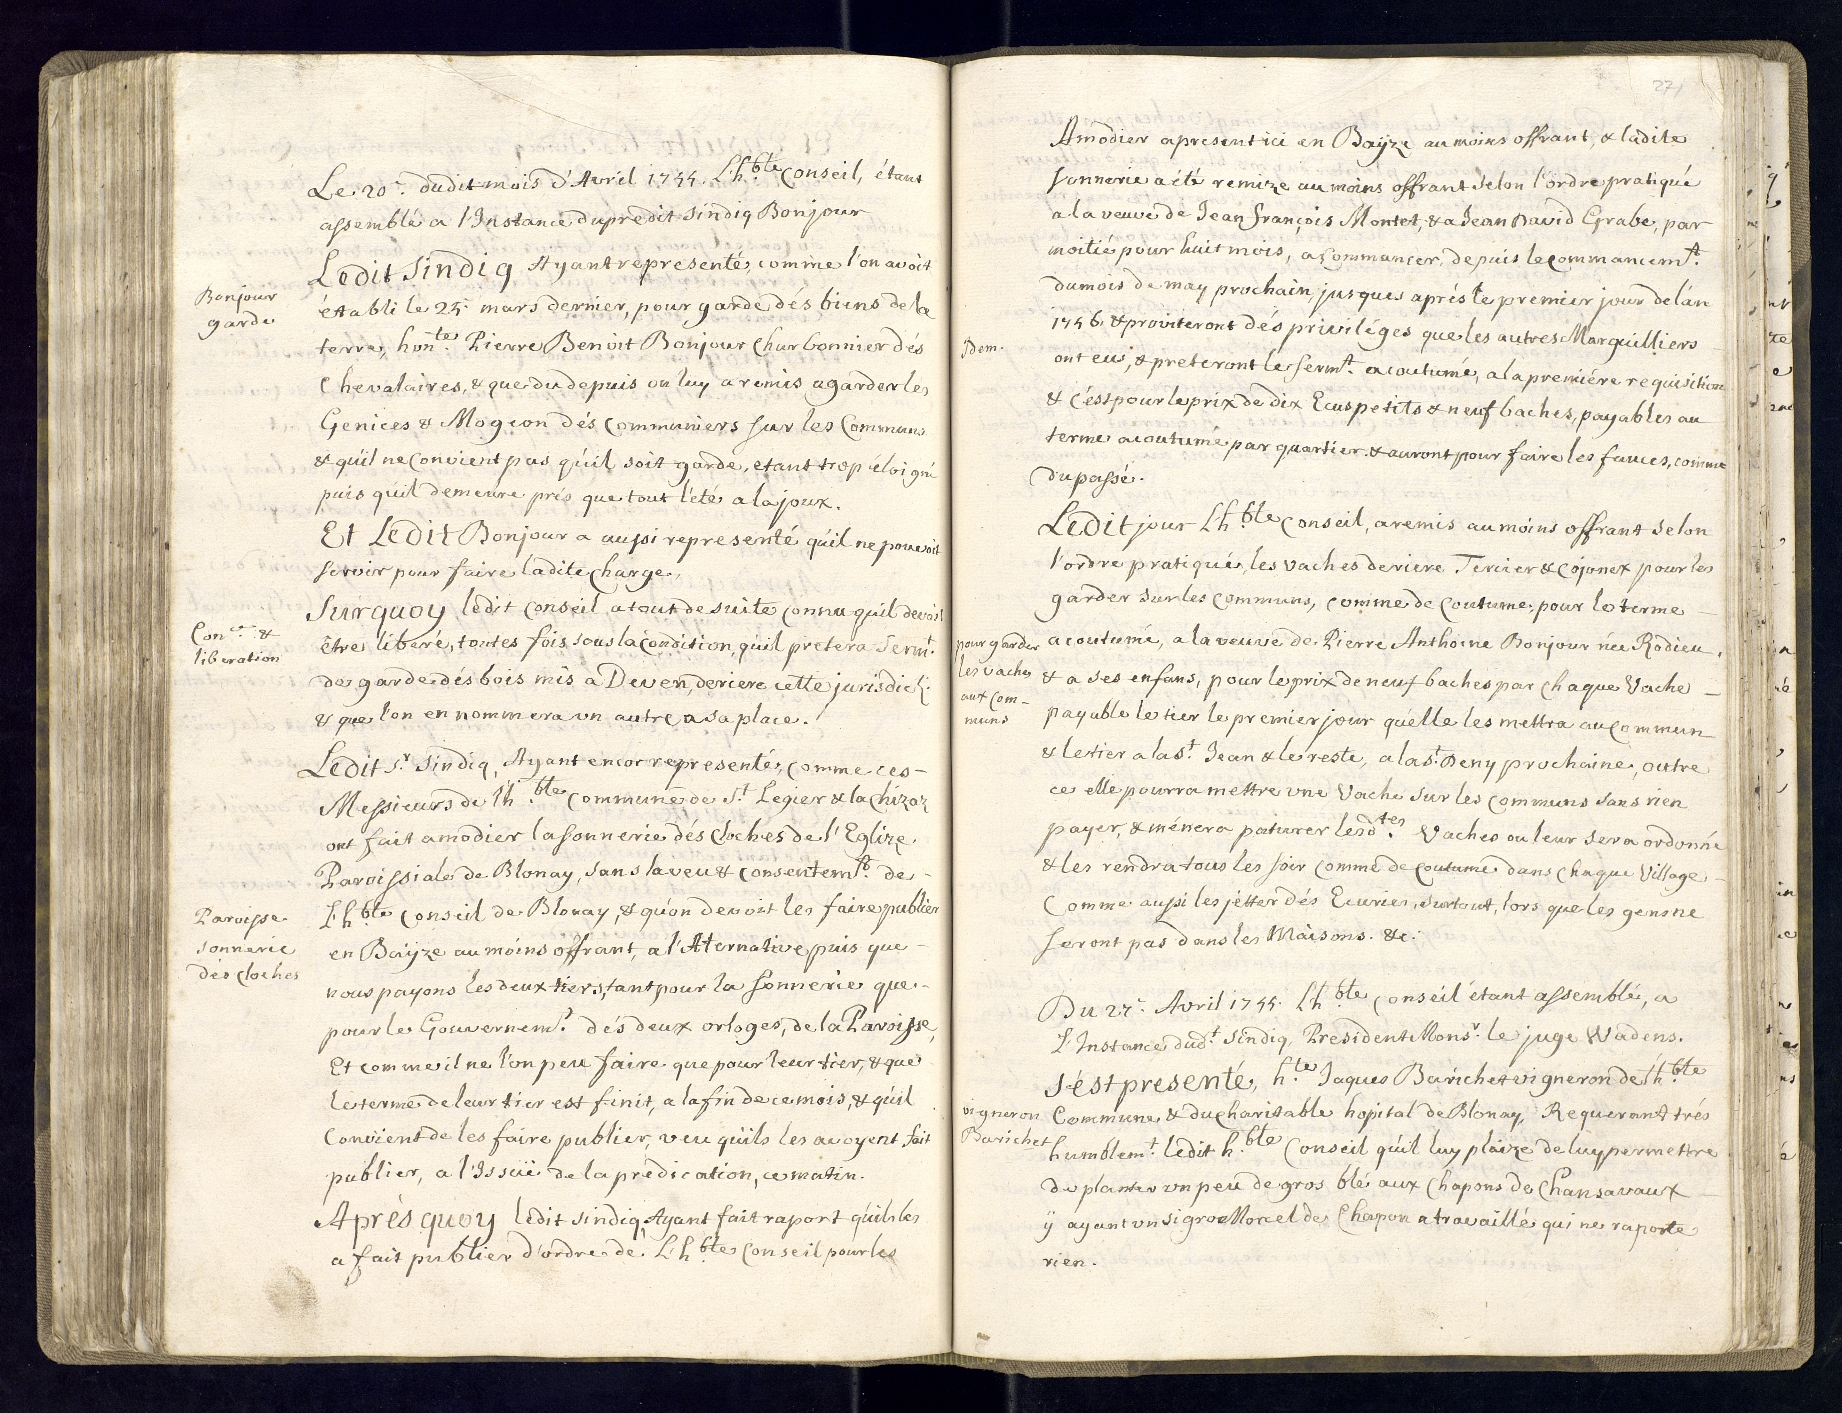 Le 20.e dudit mois d'Avril 1755. L'h.ble Conseil, étant
assemblé a l'Instance du predit Sindiq Bonjour
Bonjour
garde
Ledit Sindiq Ayant representé, comme l'on avoit
établi le 25.e mars dernier, pour garde dés biens de la
terre, hon.te Pierre Benoit Bonjour Charbonnier dés
Chevalaires, & que du depuis on luy a remis a garder les
Genices & Mogeon dés Communiers sur les Communs
& qu'il ne Convient pas qu'il soit garde, etant trop éloigné
puis qu'il demeure prés que tout l'été a la joux.
Et Ledit Bonjour a aussi representé qu'il ne pouvoit
servir pour faire ladite Charge.
Con.ce &
liberation
Surquoy ledit Conseil a tout de suite connu qu'il devoit
être liberé, toutes fois sous la Condition, qu'il pretera Serm.t
de garde dés bois mis a Deven, deriere cette jurisdict.
& que l'on en nommera un autre a sa place.
Ledit S.r Sindiq, Ayant encor representé, comme ces
Messieurs de l'h.ble Commune de S.t Legier & la Chizaz
ont fait amodier la sonnerie dés Cloches de l'Eglize
Paroissiale de Blonay, sans l'aveu & consentem.t de
Paroisse
sonnerie
dés Cloches
L'h.ble Conseil de Blonay, & qu'on devoit les faire publier
en Baÿze au moins offrant, a l'Aternative puis que
nous payons les deux tiers, tant pour la sonnerie que
pour le Gouvernem.t dés deux orloges, de la Paroisse,
Et comme il ne l'on peu faire que pour leur tier, & que
le terme de leur tier est finit, a la fin de ce mois, & qu'il
Convient de les faire publier, veu qu'ils les avoyent fait
publier, a l'Issüe de la prédication, ce matin.
Aprés quoy ledit sindiq, Ayant fait raport qu'il les
a fait publier d'ordre de L'h.ble Conseil pour les
27
Amodier a present ici en Baÿze au moins offrant, & ladite
sonnerie a été remize au moins offrant selon l'ordre pratiqué
a la veuve de Jean François Montet, & a Jean David Grabe, par
moitié pour huit mois, a Commancer, depuis le commancem.t
du mois de may prochain, jusques aprés le premier jour de l'an
1756. & profiteront dés priviléges que les autres Marguilliers
Idem.
ont eu, & preteront le Serm.t acoutumé, a la premiére requisition
& c'est pour le prix de dix Ecus petits & neuf baches, payables au
terme acoutumé par quartier. & auront pour faire les fauces, comme
du passé.
Ledit jour L'h.ble Conseil, a remis au moins offrant selon
l'ordre pratiqué, les vaches deriere Tercier & Cojonex pour les
garder sur les Communs, comme de Coutume, pour le terme
pour garder
les vaches
aux Com-
muns
acoutumé, a la veuve de Pierre Anthoine Bonjour née Rodieu,
& a ses enfans, pour le prix de neuf baches par chaque Vache
payable le tier le premier jour qu'elle les mettra au Commun
& le tier a la s.t Jean & le reste, a la s.t Deny prochaine, outre
ce elle pourra mettre une Vache sur les Communs sans rien
payer, & ménera paturer lesd.tes Vaches ou leur sera ordonné
& les rendra tous les soir comme de Coutume dans chaque Village
Comme aussi les jetter dés Ecuries, surtout, lors que les gens ne
seront pas dans les Maisons. &c.
Du 27.e Avril 1755. L'h.ble Conseil étant assemblé, a
L'Instance dud.t Sindiq, President Mons.r le juge Wadens.
S'est presenté, h.te Jaques Barichet vigneron de l'h.ble
vigneron
Barichet
Commune, & du charitable hopital de Blonay, Requerant trés
humblem.t ledit h.ble Conseil qu'il luy plaize de luy permettre
de planter un peu de gros blé aux Chapons de Chansavaux
ÿ ayant un si gros Morcel de Chapon a travaillé qui ne raporte
rien.